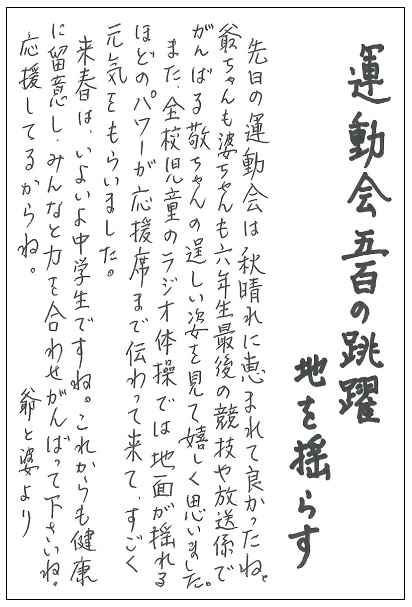 運動会五百の跳躍
地を揺らす
先日の運動会は秋晴れに恵まれて良かったね。
爺ちゃんも婆ちゃんも六年生最後の競技や放送係で
がんばる敬ちゃんの逞しい姿を見て嬉しく思いました。
また、全校児童のラジオ体操では地面が揺れる
ほどのパワーが応援席まで伝わって来て、すごく
元気をもらいました。
来春は、いよいよ中学生ですね。これからも健康
に留意し、みんなと力を合わせがんばって下さいね。
応援してるからね。
爺と婆より